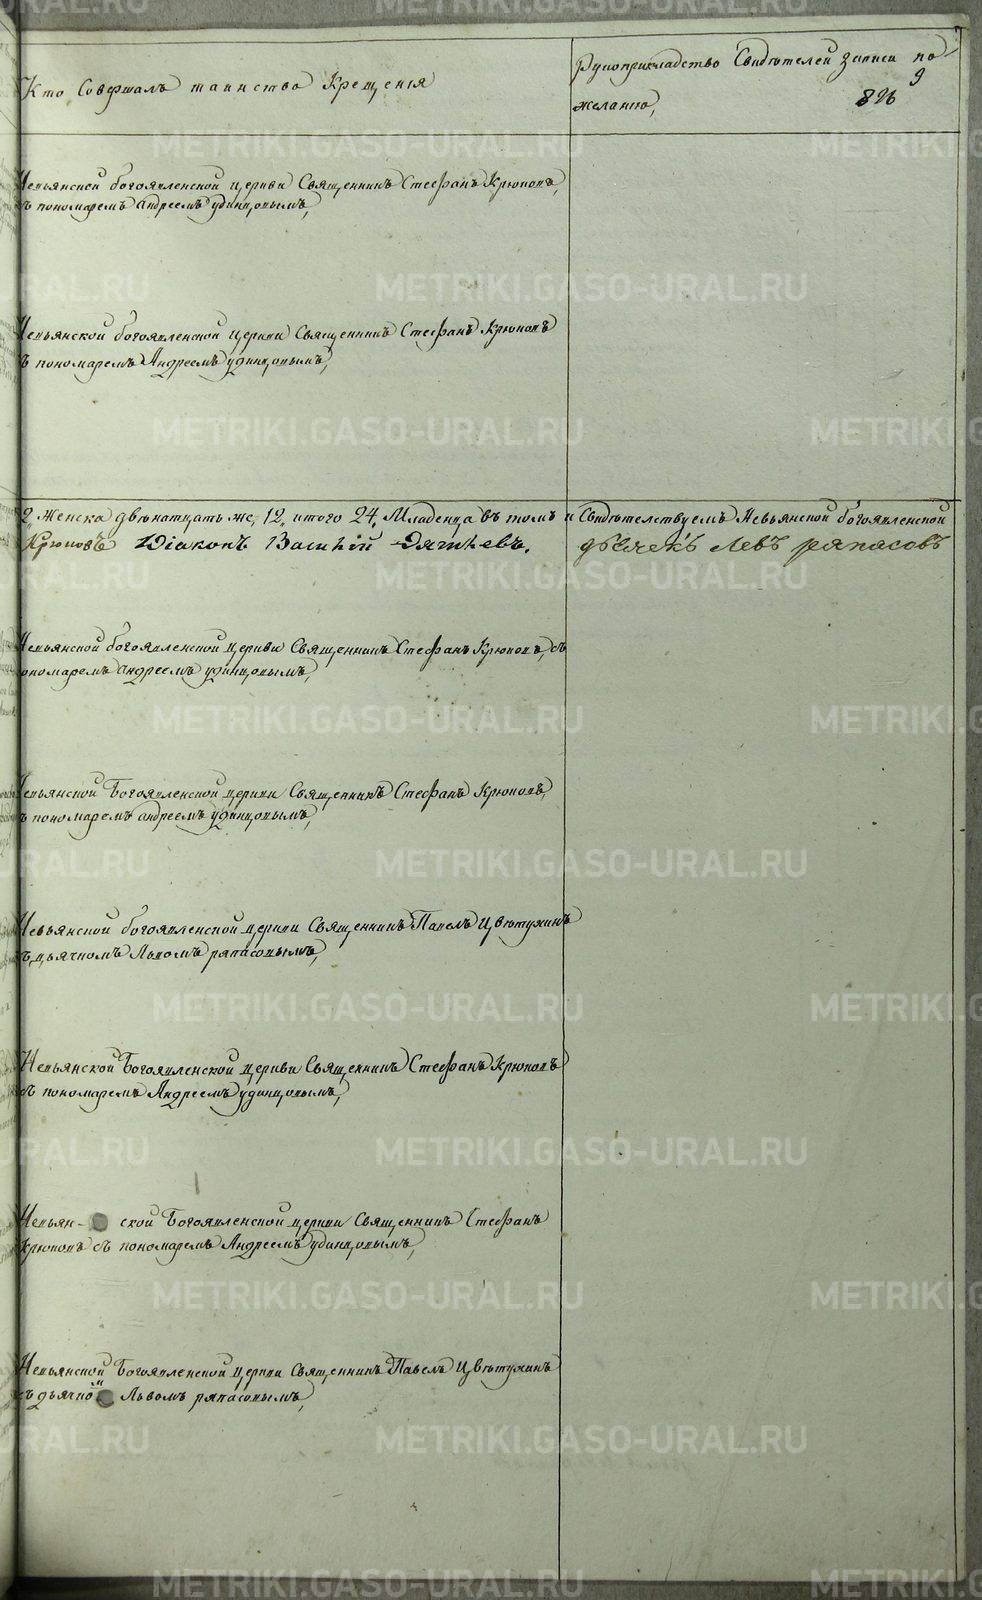 Кто Совершалъ таинство Крещенія
Рукоприкладство Свидѣтелей записи по
желанію,
826
9
Невьянской богоявленской церкви Священникъ Стефанъ Крюковъ,
съ пономаремъ андреемъ удинцовымъ,
Невьянской богоявленской церкви Священникъ Стефанъ Крюковъ
съ пономаремъ Андреемъ удинцовымъ,
2, женска двенатцать же, 12, итого 24, Младенца въ томъ и
Крюковъ Діаконъ Василій
Свидѣтелствуемъ Невьянской богоявленской
дьячекъ Левъ ряпасовъ
Невьянской богоявленской церкви Священникъ Стефанъ Крюковъ, съ
пономаремъ андреемъ удинцовымъ,
Невьянской Богоявленской церкви Священникъ Стефанъ Крюковъ,
съ пономаремъ андреемъ удинцовымъ,
Невьянской богоявленской церкви Священникъ Павелъ Цвѣтухинъ
съ дьячкомъ Львомъ ряпасовымъ,
Невьянской Богоявленской церкви Священникъ Стефанъ Крюковъ
съ пономаремъ Андреемъ удинцовымъ,
Невьян- ской Богоявленской церкви Священникъ Стефанъ
Крюковъ съ пономаремъ Андреемъ удинцовымъ,
Невьянской Богоявленской церкви Священникъ Павелъ Цвѣтухинъ
съ дьячкомъ Львомъ ряпасовымъ,
METRIKI.GASO-URAL.RU